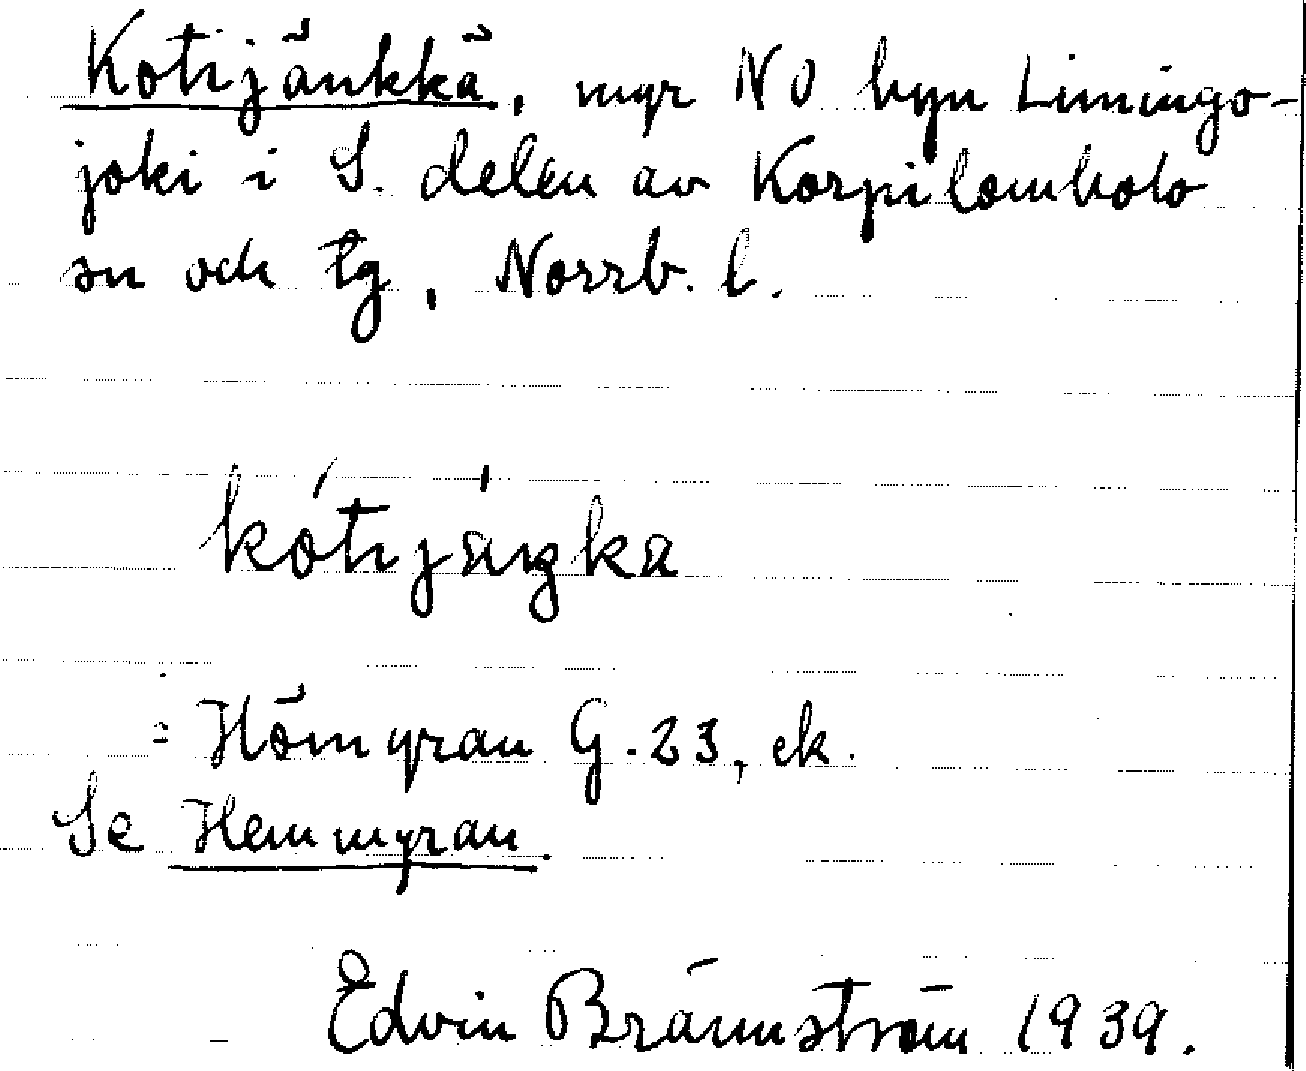 Kotijänkkä, myr NO byn Limingo-
joki i S. delen av Korpilombolo
sn och tg, Norrb. l.
kótijäŋka
= Hömyran G.23, ek.
Se Hemmyran.
Edvin Brännström 1939.